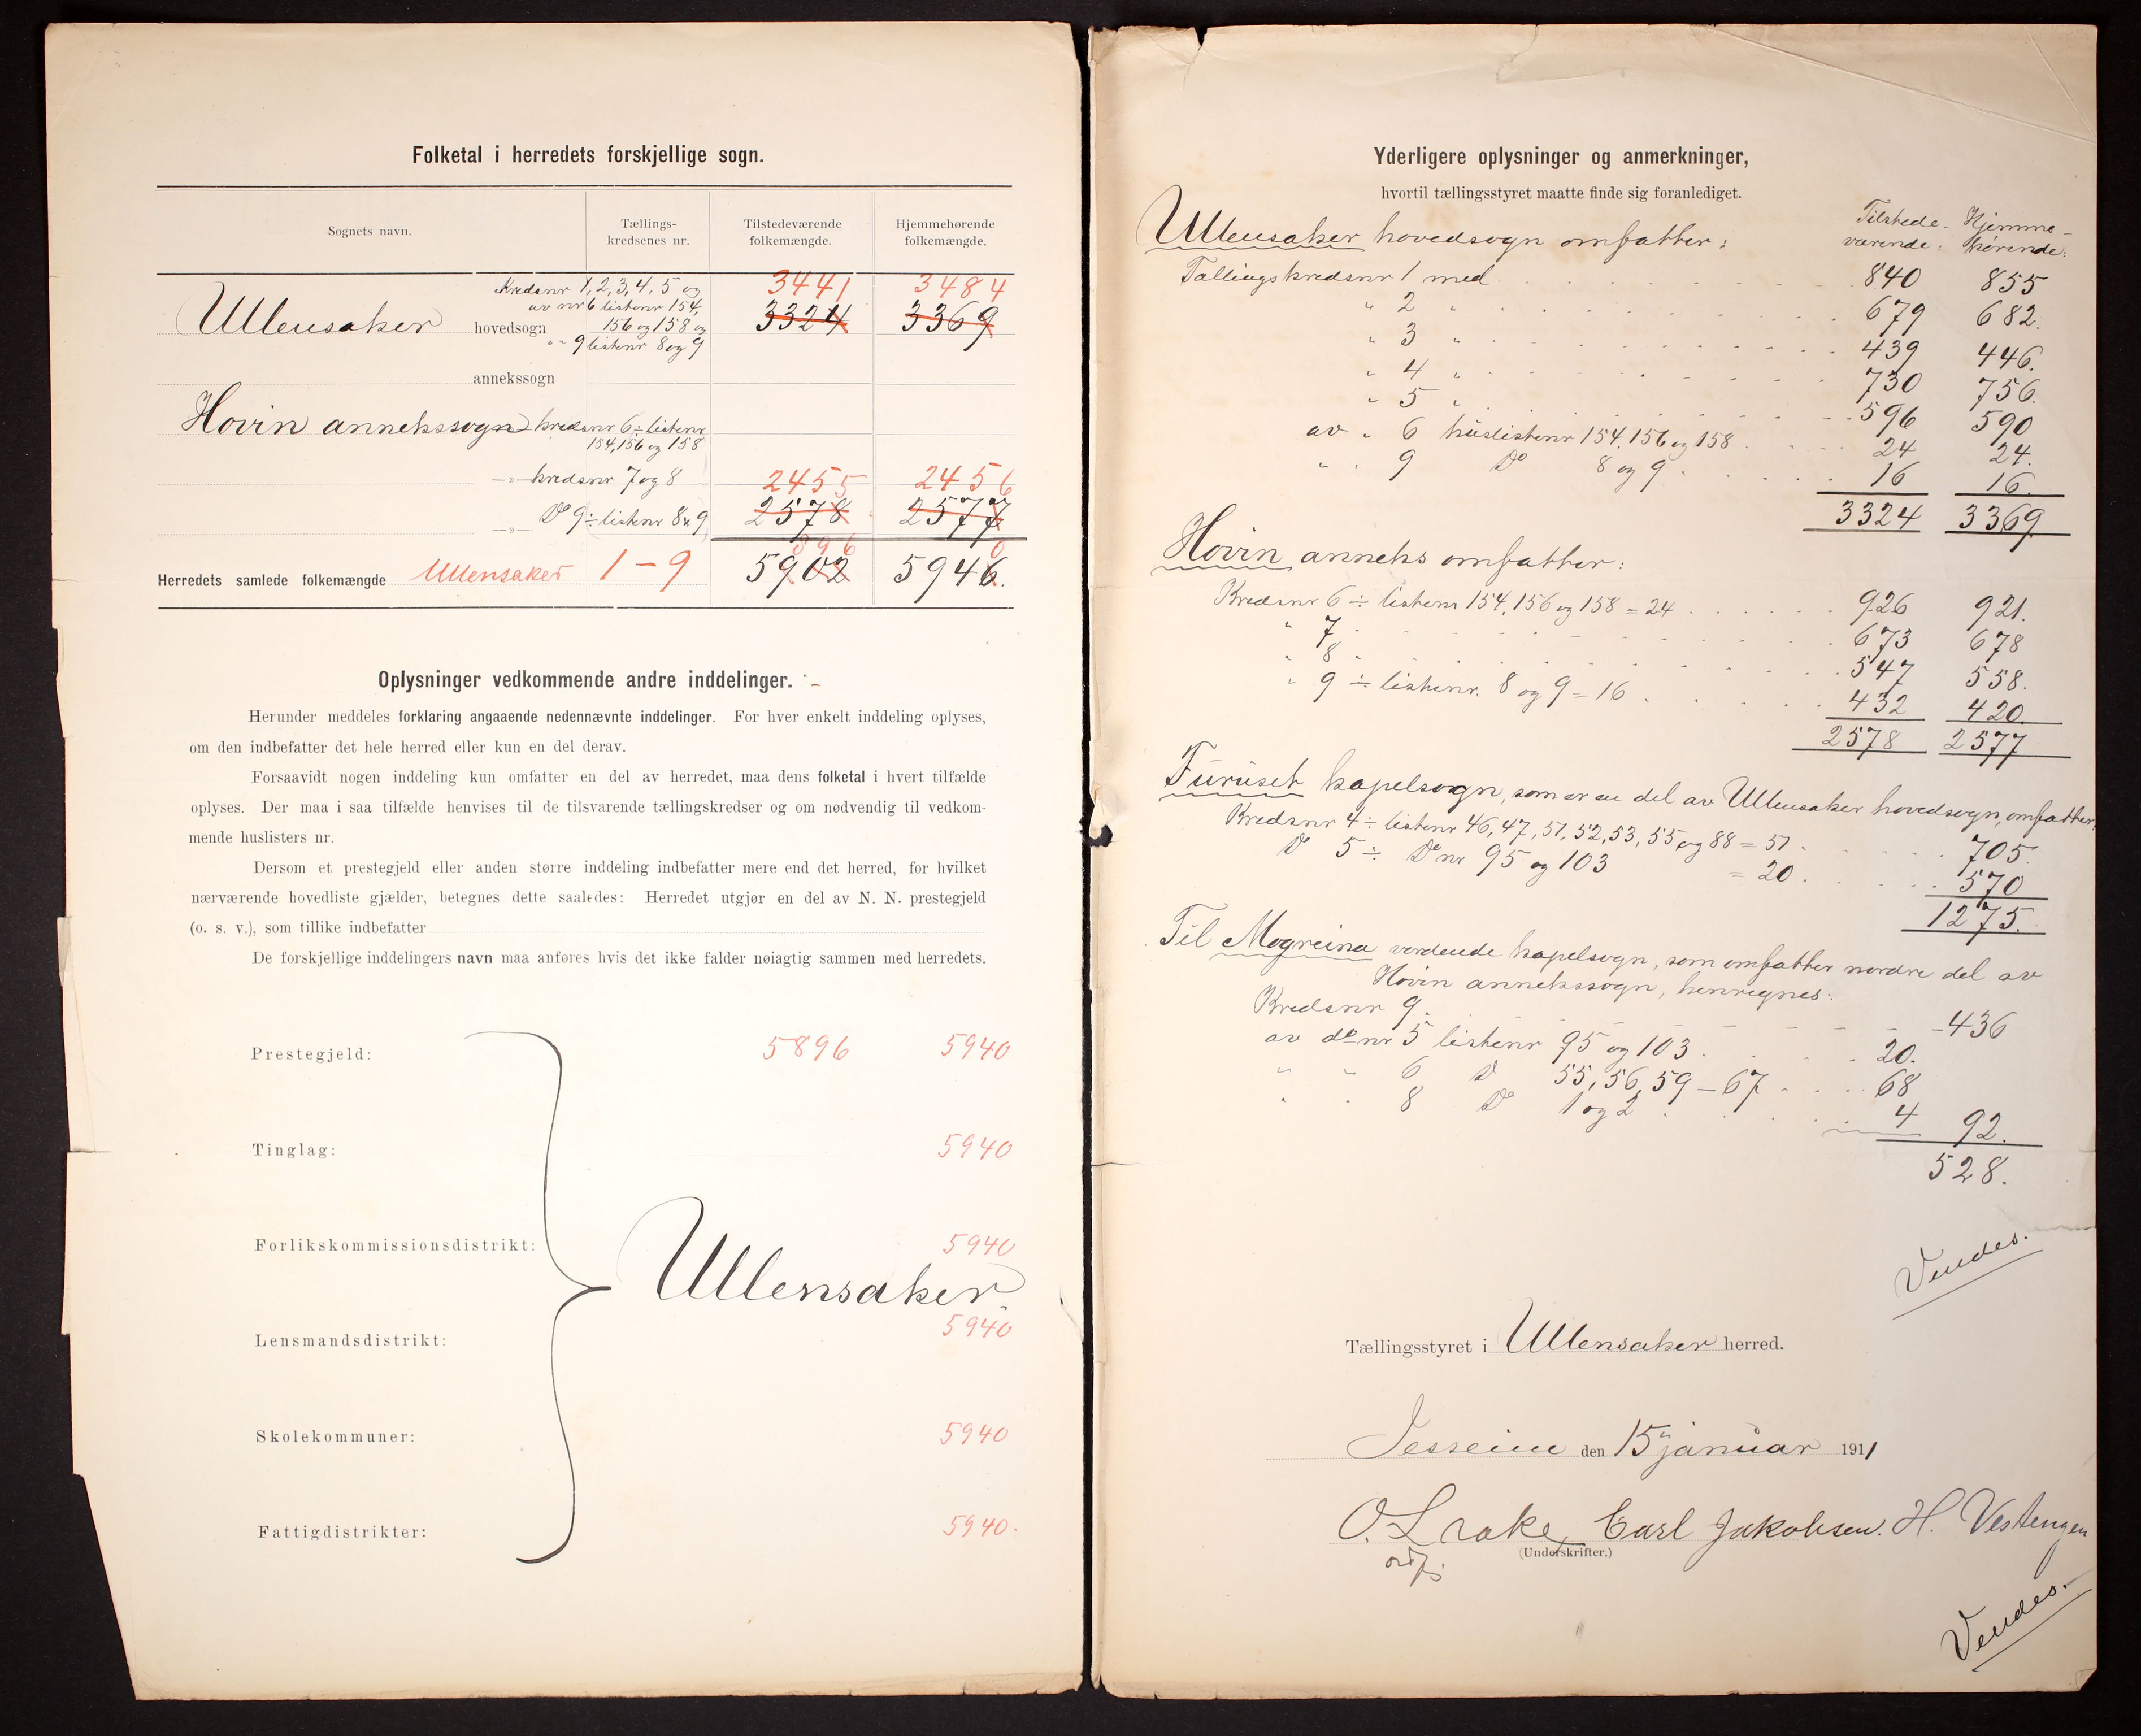 Folketal i herredets forskjellige sogn.
Sognets navn.
Tællings-
kredsenes nr.
Tilstedeværende
folkemængde.
Hjemmehørende
folkemængde.
Kredsnr 1, 2, 3, 4, 5 og
av nr 6 listenr 154,
156 og 158 og
" " 9 listenr 8 og 9
Ullensaker hovedsogn
3441 3484
3324 3369
annekssogn
Hovin annekssogn kredsnr 6 ÷ listenr
154, 156 og 158
—"— kredsnr 7 og 8
2455 2456
—"— Do 9 ÷ listenr 8 & 9 2578 2577
896 0
Herredets samlede folkemængde Ullensaker 1 – 9 5902 5946.
Oplysninger vedkommende andre inddelinger.
Herunder meddeles forklaring angaaende nedennævnte inddelinger. For hver enkelt inddeling oplyses,
om den indbefatter det hele herred eller kun en del derav.
Forsaavidt nogen inddeling kun omfatter en del av herredet, maa dens folketal i hvert tilfælde
oplyses. Der maa i saa tilfælde henvises til de tilsvarende tællingskredser og om nødvendig til vedkom-
mende huslisters nr.
Dersom et prestegjeld eller anden større inddeling indbefatter mere end det herred, for hvilket
nærværende hovedliste gjælder, betegnes dette saaledes: Herredet utgjør en del av N. N. prestegjeld
(o. s. v.), som tillike indbefatter
De forskjellige inddelingers navn maa anføres hvis det ikke falder nøiagtig sammen med herredets.
Prestegjeld: 5896 5940
Tinglag: 5940
Forlikskommissionsdistrikt: 5940
Ullensaker
Lensmandsdistrikt: 5940
Skolekommuner: 5940
Fattigdistrikter: 5940.
Yderligere oplysninger og anmerkninger,
hvortil tællingsstyret maatte finde sig foranlediget.
Tilstede- Hjemme-
værende: hørende:
Ullensaker hovedsogn omfatter:
Tællingskredsnr 1 med 840 855
" 2 " 679 682.
" 3 " 439 446.
" 4 " 730 756.
" 5 " 596 590
av " 6 huslistenr 154, 156 og 158 24 24.
" " 9 Do 8 og 9 16 16.
3324 3369.
Hovin anneks omfatter:
Kredsnr 6 ÷ listenr 154, 156 og 158 = 24 926 921.
" 7 673 678
" 8 547 558.
" 9 ÷ listenr. 8 og 9 = 16 432 420.
2578 2577
Furuset kapelsogn, som er en del av Ullensaker hovedsogn, omfatter:
Kredsnr 4 ÷ listenr 46, 47, 51, 52, 53, 55 og 88 = 51 705.
Do 5 ÷ Do nr 95 og 103 = 20. 570
1275.
Til Mogreina vordende kapelsogn, som omfatter nordre del av
Hovin annekssogn, henregnes:
Kredsnr 9 436
av do nr 5 listenr 95 og 103 20.
" " 6 Do 55, 56, 59 – 67 68
" " 8 Do 1 og 2 4 92.
528.
Vendes.
Tællingsstyret i Ullensaker herred.
Jessheim den 15 januar 1911
Carl Jakobsen. H. Vestengen
ordf.
(Underskrifter.)
Vendes.